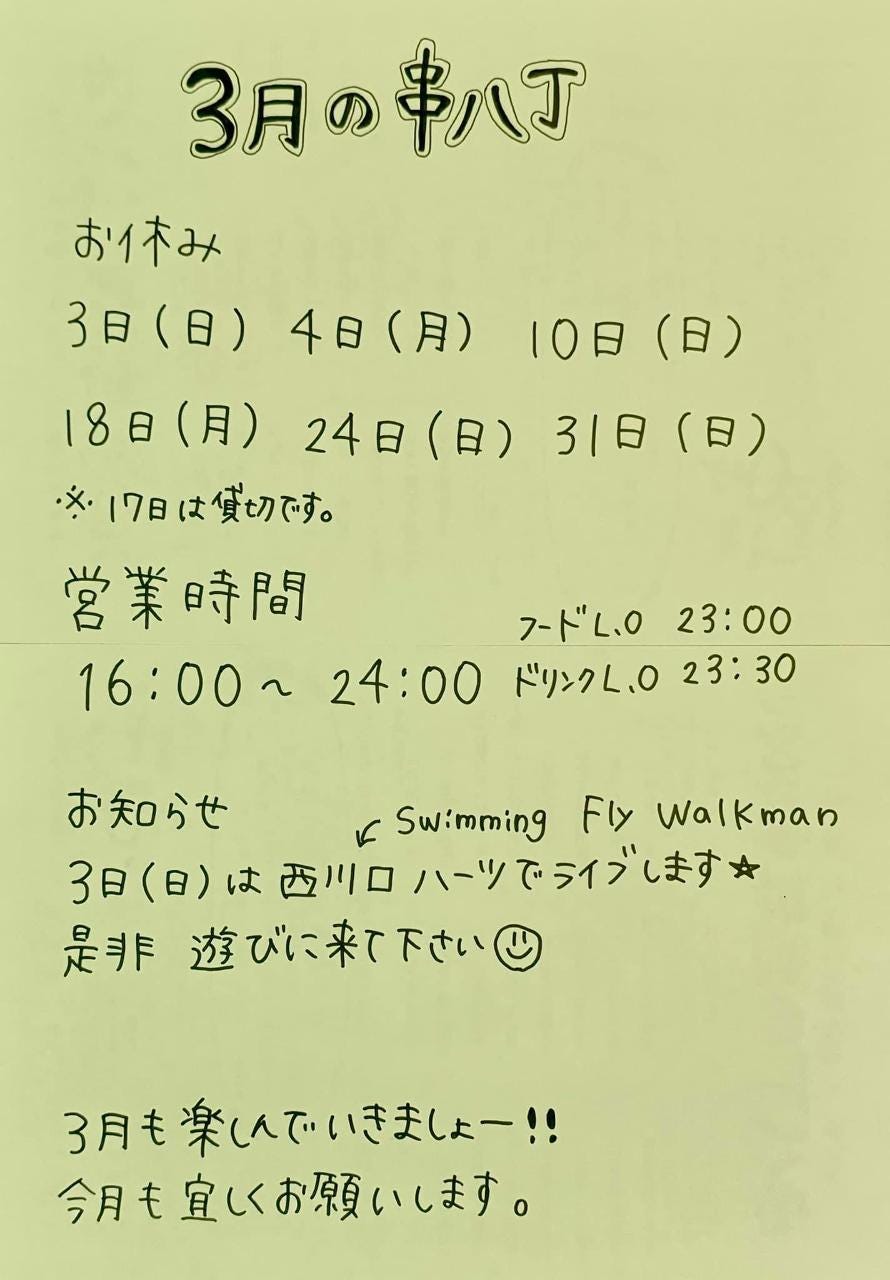 3月の串八丁
お休み
3日(日) 4日(月) 10日(日)
18日(月) 24日(日) 31日(日)
※17日は貸切です。
営業時間
フードL.O 23:00
16:00~24:00 ドリンクL.O 23:30
お知らせ
↙ Swimming Fly Walkman
3日(日)は西川口ハーツでライブします★
是非 遊びに来て下さい☺
3月も楽しんでいきましょー!!
今月も宜しくお願いします。